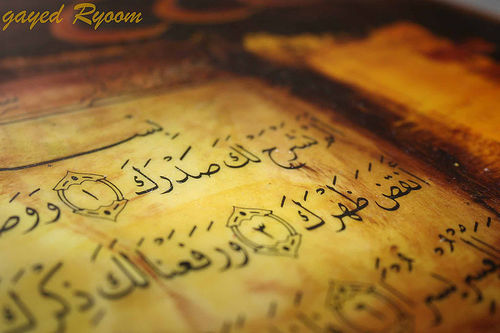 gayed Ryoom
بِسْـ
نَشْرَحْ لَكَ صَدْرَكَ ١ وَوَضَـ
أَنقَضَ ظَهْرَكَ ٣ وَرَفَعْنَا لَكَ ذِكْرَكَ
ٱلْعُسْرِ يُسْرًا